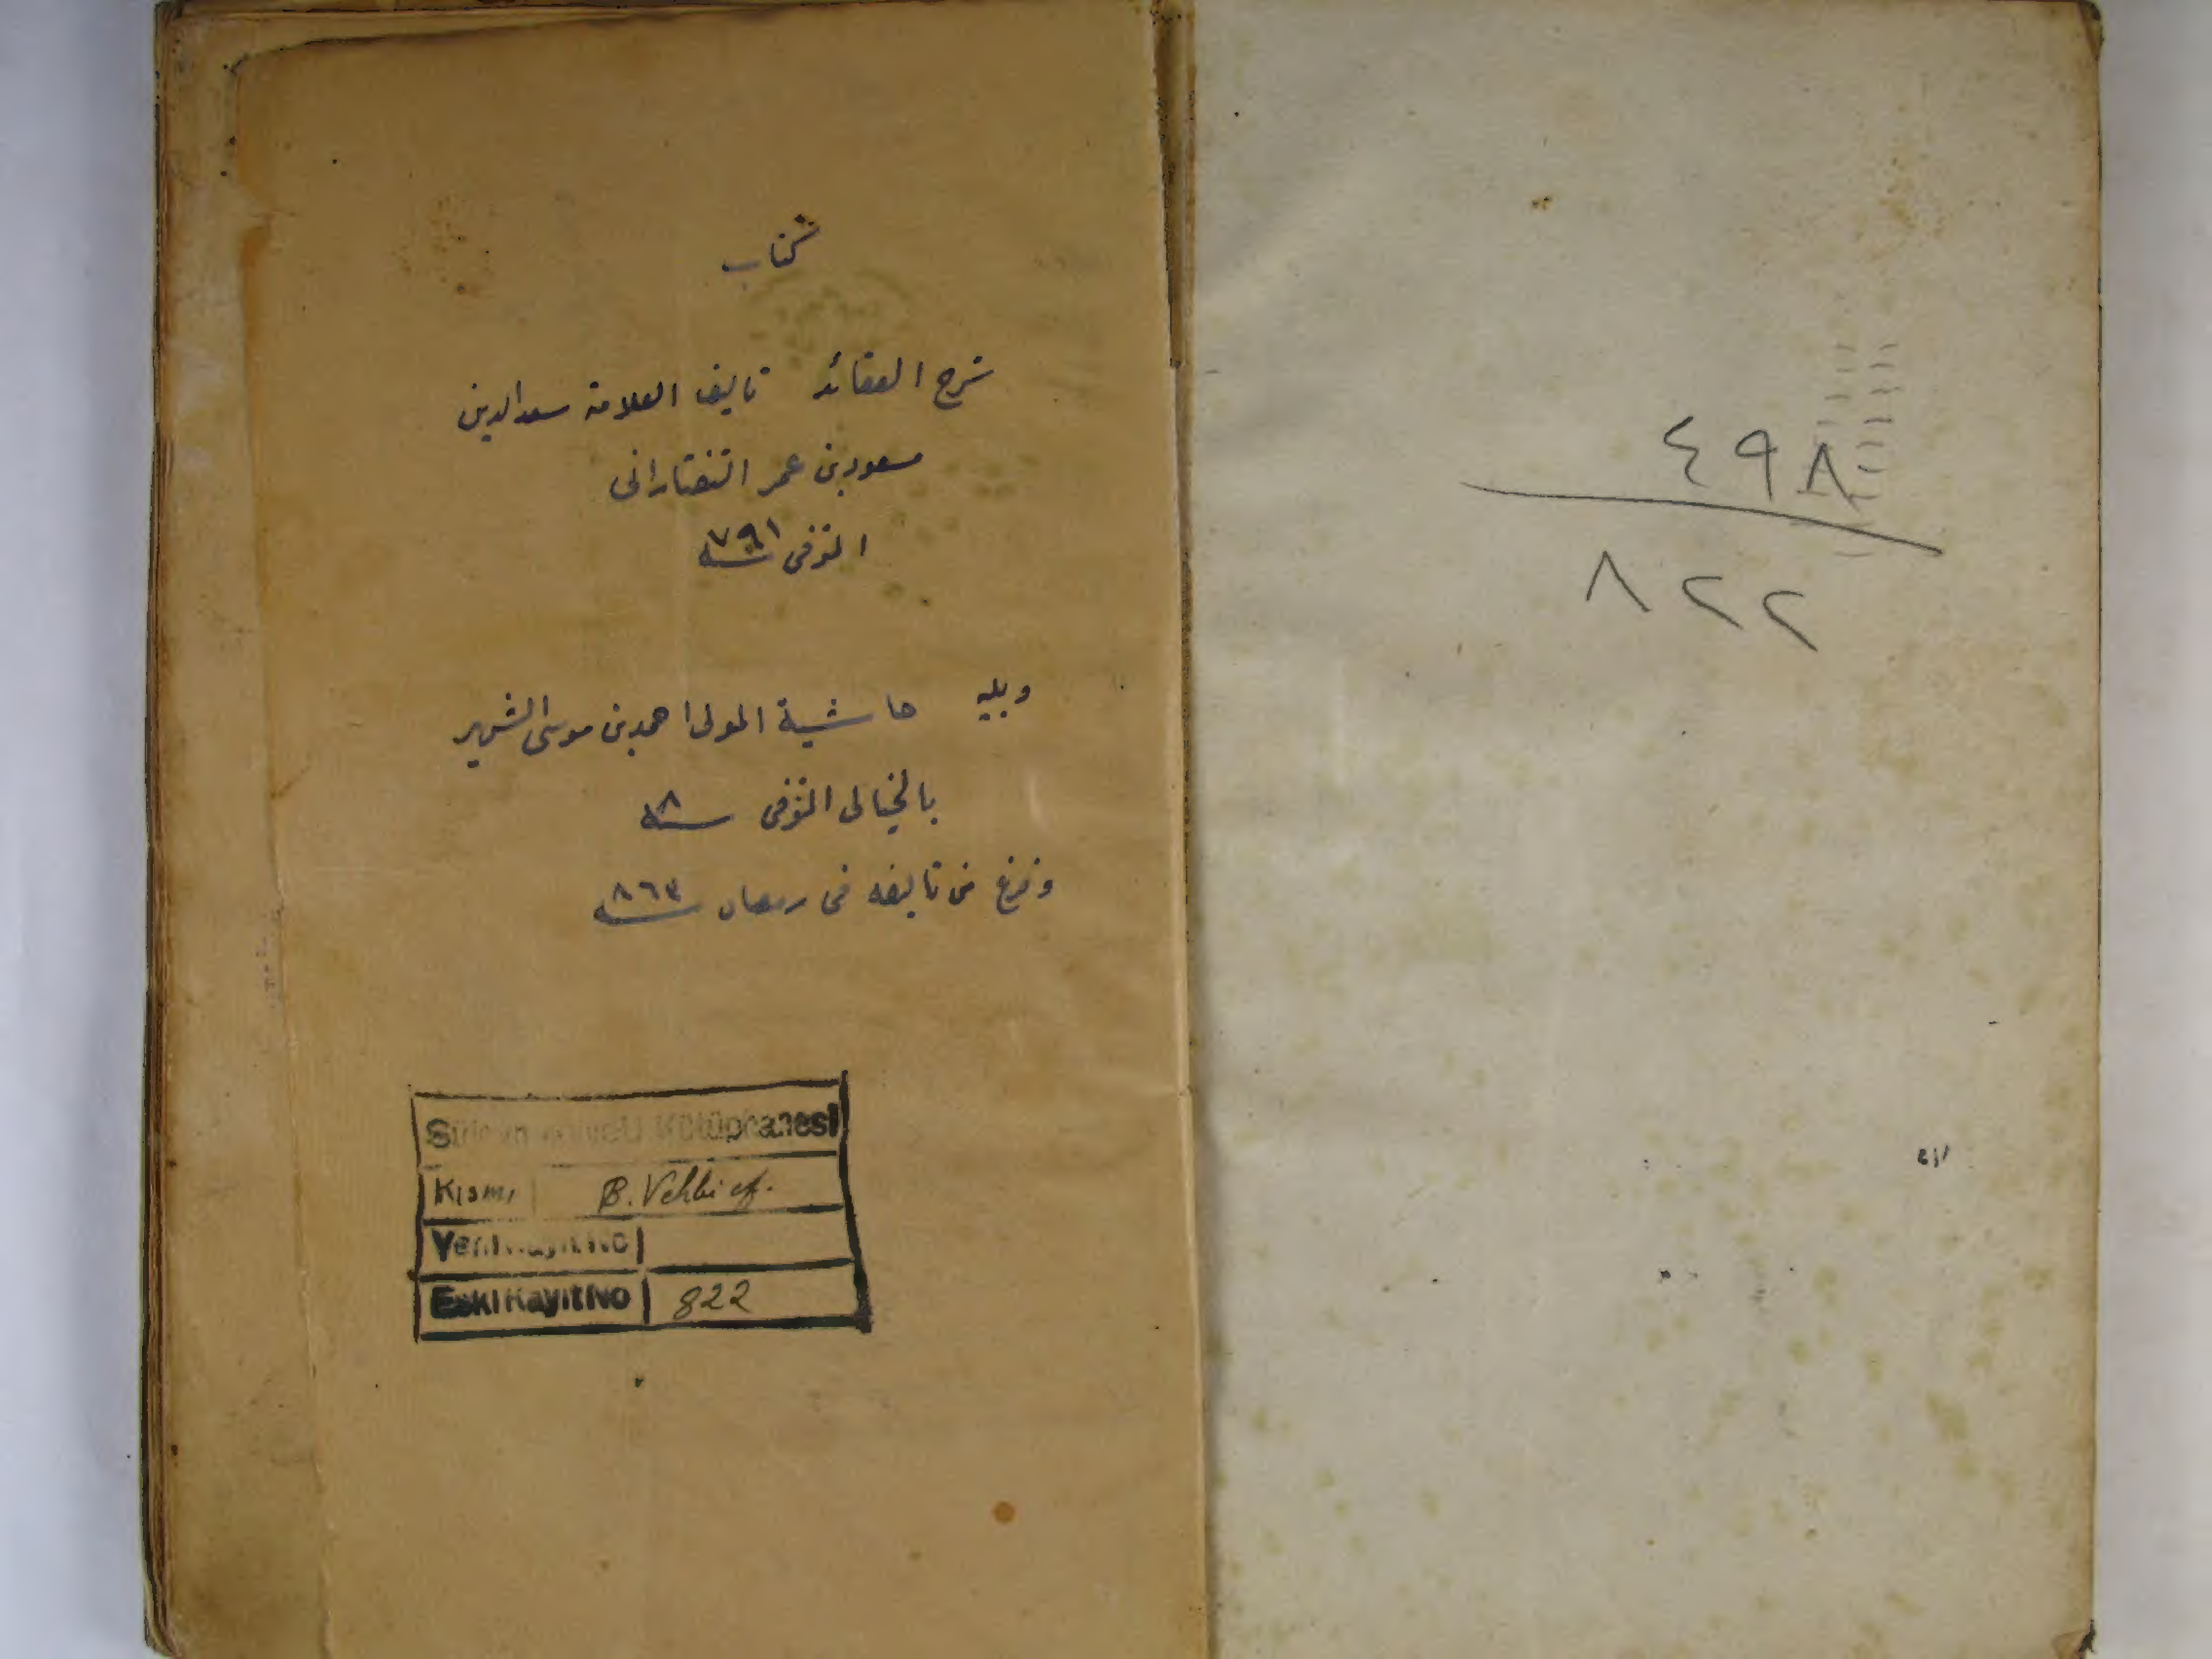 ٤٩٨
٨٢٢
كتاب
شرح العقائد تاليف العلامة سعدالدين
مسعود بن عمر التفتازانى
المتوفى سنه ٧٩١
ويليه حاشية المولى احمد بن موسى الشهير
بالخيالى المتوفى سنه ٨
وفرغ من تاليفه فى رمضان سنه
Süleymaniye U Kütüphanesi
Kısmı B. Vehbi ef.
Yeni Kayıt No
Eski Kayıt No 822